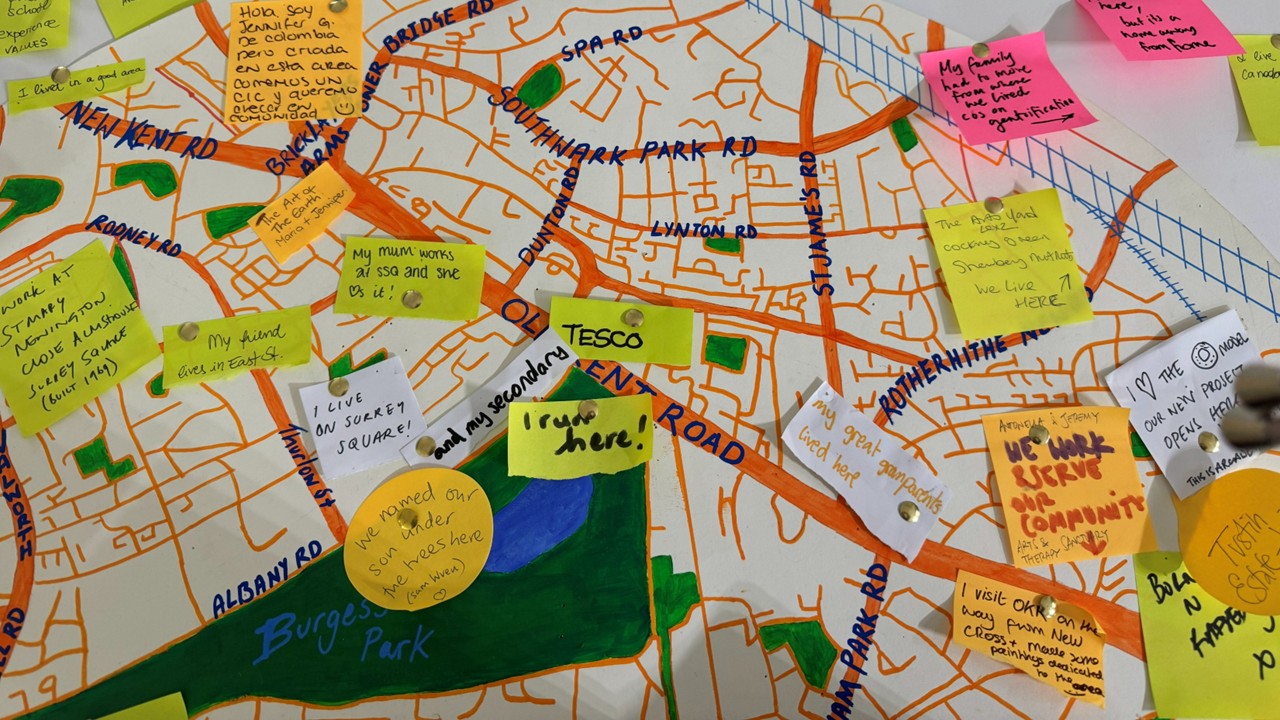 SCHOOL
EXPERIENCE
VALUES
I lived in a good area
Hola, soy
JENNIFER G.
De colombia
pero criada
en esta area
comemus un
CIC y queremo
crecer en
comunidad
BRIDGE RD
SPA RD
SOUTHWARK PARK RD
NEW KENT RD
ARMS
My family
had to move
from where
we lived
cos on
gentrification
here,
but its a
home away
from home
& live
The Art of
The Earth
Maria + Jennifer
RODNEY RD
DUNTON RD
LYNTON RD
ST JAME'S RD
My mum works
at SSQ and she
♡s it!
The
cocking green
we live
HERE
WORK AT
ST MARY
NEWINGTON
CLOSE ALMSHOUSE
SURREY SQUARE
(BUILT 1969)
My friend
lives in East St.
OL
TESCO
ENT ROAD
I LIVE
ON SURREY
SQUARE!
and my secondary
I run
here!
my great granparents
lived here
ROTHERHITHE
I ♡ THE
MODEL
OUR NEW PROJECT
OPENS
THIS IS
& JEREMY
WE WORK
&SERVE
OUR
COMMUNITY
ARTS &
THERAPY
Thurlow ST
WALWORTH
we named our
son under
the trees here
(Sam Wren)
♡
ALBANY RD
Burgess
Park
I visit OKR on the
way from New
Cross + made some
paintings dedicated
to the area
AM PARK RD
Tustin
Estate